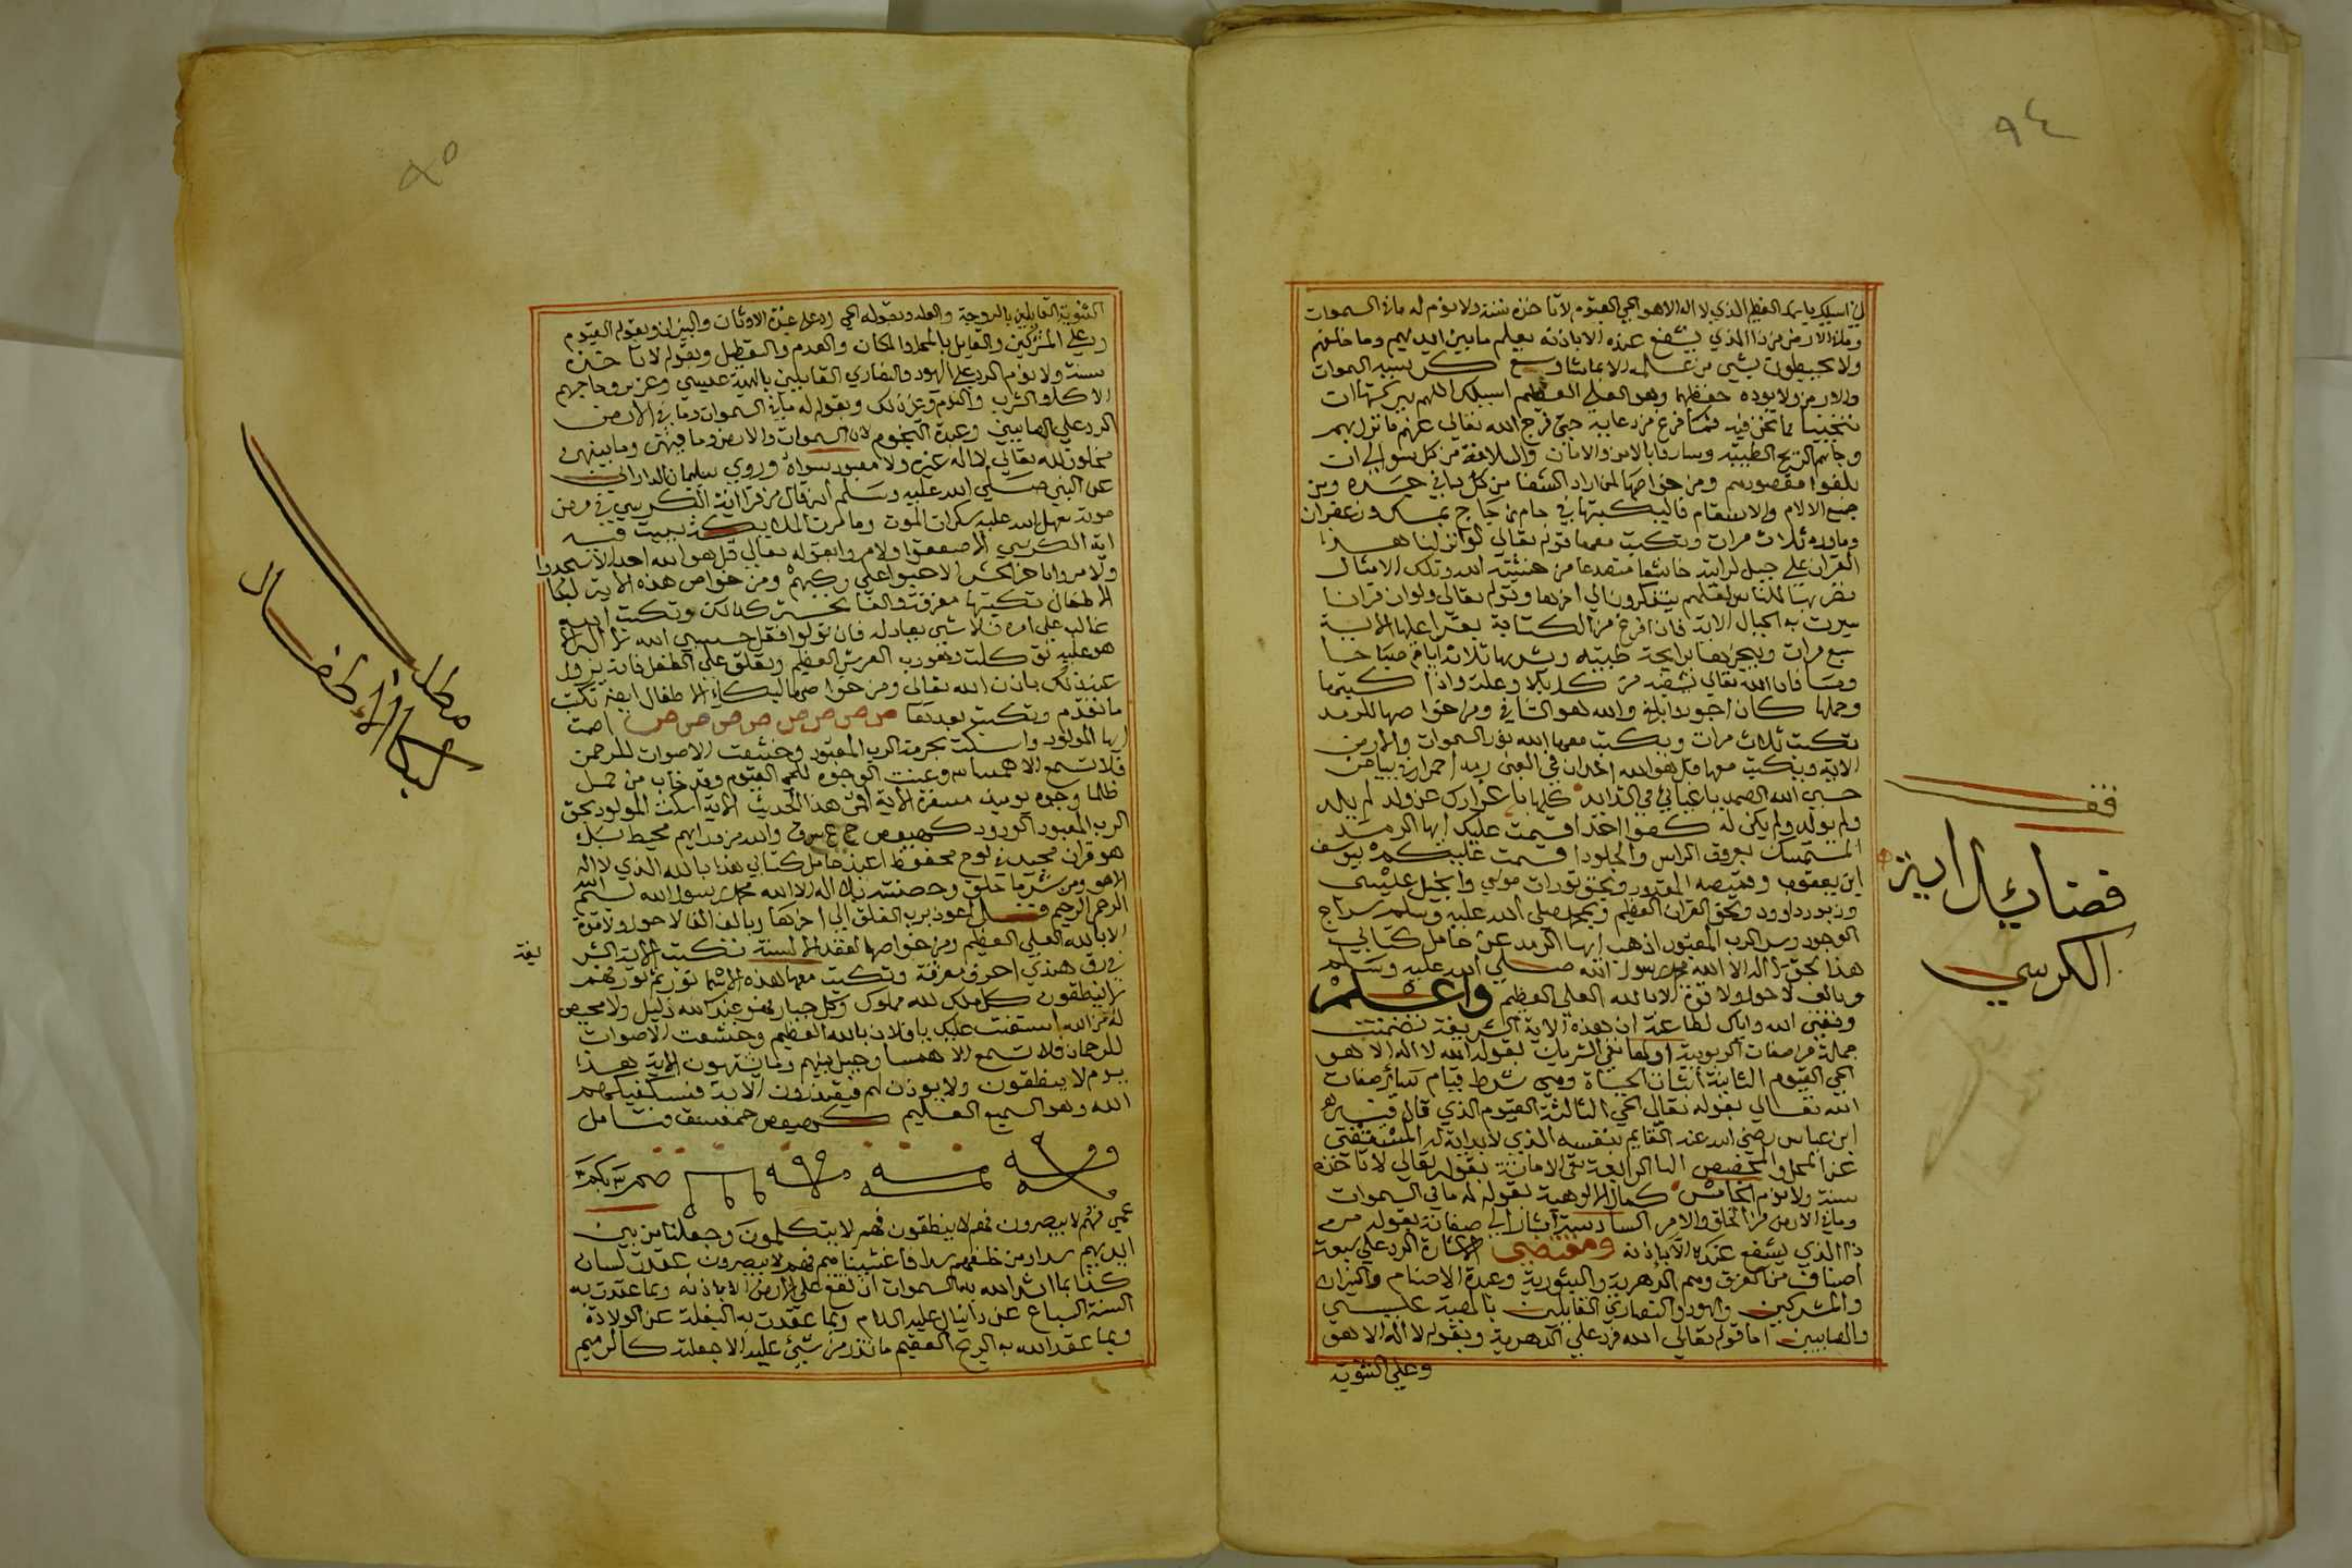 ٩٤
اني اسيلك باسمك العظيم الذي لا اله الا هو الحي القيوم لا تاخذه سنة ولا نوم له ما في السموات
وما في الارض من ذا الذي يشفع عنده الا باذنه يعلم ما بين ايديهم وما خلفهم
ولا يحيطون بشي من علمه الا بما شا وسع كرسيه السموات
والارض ولا يوده حفظهما وهو العلي العظيم اسيلك اللهم ببركتها ان
تنجينا مما نحن فيه فلما فرغ من دعايه حتى فرج الله تعالى عنهم ما نزل بهم
وجاتهم الريح الطيبة وساروا بالامن والامان والسلامة من كل سو الي ان
بلغوا مقصودهم ومن خواصها لمن اراد الشفا من كل دا في جسده ومن
جميع الالام والاسقام فاليكتبها في جام من زجاج بمسك وزعفران
وماورد ثلاث مرات ويكتب معها قوله تعالى لو انزلنا هذا
القران على جبل لرايته خاشعا متصدعا من خشية الله وتلك الامثال
نضربها للناس لعلهم يتفكرون الي اخرها وقوله تعالى ولو ان قرانا
سيرت به الجبال الاية فاذا فرغ من الكتابة يقرا عليها الاية
سبع مرات ويبخرها برايحة طيبة ويشربها ثلاثة ايام صباحا
ومسا فان الله تعالى يشفيه من كل بلا وعلة واذا كتبها
وحملها كان اجود وابلغ والله هو الشافي ومن خواصها للرمد
تكتب ثلاث مرات ويكتب معها الله نور السموات والارض
الاية ويكتب معها قل هو الله احد ان في العين رمد احمرار في بياض
حسبي الله الصمد يا غياثي في الشدايد
ولم يولد ولم يكن له كفوا احد اقسمت عليك ايها الرمد
المستمسك بعروق الراس والجلود اقسمت عليكم بيوسف
ابن يعقوب وقميصه المقدود وبحق تورات موسي وانجيل عليسي
وزبور داوود وبحق القران العظيم وبمحمد صلى الله عليه وسلم سراج
الوجود وسر الرب المعبود اذهب ايها الرمد عن حامل كتابي
هذا بحق لا اله الا الله محمد رسول الله صلى الله عليه وسلم
وبالف لا حول ولا قوة الا بالله العلي العظيم واعلم
وفقني الله واياك لطاعته ان هذه الاية الشريفة تضمنت
جملة من صفات الربوبية اولها نفي الشريك لقوله الله لا اله الا هو
الحي القيوم الثانية اثبات الحياة وهي شرط قيام ساير صفات
الله تعالى بقوله تعالى الحي الثالثة القيوم الذي قال فيه
ابن عباس رضي الله عنه القايم بنفسه الذي لا بداية له المستغني
عن المحل والمخصص الرابعة نفي بقوله تعالى لا تاخذه
سنة ولا نوم الخامس كمال الالوهية بقوله له ما في السموات
وما في الارض من الخلق والامر السادسة اشار الي صفاته بقوله من
ذا الذي يشفع عنده الا باذنه ومقتضى الاشارة الرد علي سبعة
اصناف من الفرق وهم الدهرية والثنوية وعبدة الاصنام والنيران
والمشركين واليهود والنصاري القايلين بالهية عليسي
والصابيين اما قوله تعالى الله فرد علي الدهرية وبقوله لا اله الا هو
وعلي الثنوية
فقف
فضائل اية
الكرسي
٩٥
الثنوية القايلين بالزوجة والولد وبقوله الحي رد علي عبدة الاوثان والنيران وبقوله القيوم
رد علي المشركين والقايل بالمحل والمكان والعدم والتعطيل وبقوله لا تاخذه
سنة ولا نوم الرد علي اليهود والنصاري القايلين بالهية عليسي وعزير وحاجتهم
الاكل والشرب والنوم وغير ذلك وبقوله له ما في السموات وما في الارض
الرد علي الصابيين وعبدة النجوم لان السموات والارض وما فيهن وما بينهن
مخلوق لله تعالى لا اله غيره ولا معبود سواه وروي سليمان الداراني
عن النبي صلى الله عليه وسلم انه قال من قرا اية الكرسي في مرض
موته سهل الله عليه سكرات الموت وما مرت الملايكة ببيت فيه
اية الكرسي الا صعقوا ولا مروا بقوله تعالى قل هو الله احد الا سجدوا
ولا مروا باخر الحشر الا جثوا علي ركبهم ومن خواص هذه الاية لبكا
الاطفال تكتبها مفرقة والفاتحة كذلك وتكتب الله
غالب علي امره فلا شي يعادله فان تولوا فقل حسبي الله لا اله الا
هو عليه توكلت وهو رب العرش العظيم ويعلق علي الطفل فانه يزول
عنه ذلك باذن الله تعالى ومن خواصها لبكاء الاطفال ايضا تكتب
ما تقدم ويكتب بعدها ص ص ص ص ص ص ص ص اصمت
ايها المولود واسكت بحرمة الرب المعبود وخشعت الاصوات للرحمن
فلا تسمع الا همسا وعنت الوجوه للحي القيوم وقد خاب من حمل
ظلما وجوه يوميذ مسفرة الاية افمن هذا الحديث الاية اسكت المولود بحق
الرب المعبود الودود كهيعص حمعسق والله من ورايهم محيط بل
هو قران مجيد في لوح محفوظ اعيذ حامل كتابي هذا بالله الذي لا اله
الا هو ومن شر ما خلق وحصنته بلا اله الا الله محمد رسول الله بسم الله
الرحمن الرحيم قل اعوذ برب الفلق الي اخرها وبالف الف لا حول ولا قوة
الا بالله العلي العظيم ومن خواصها لعقد الالسنة تكتب الاية الشر
يفة
في رق هندي احرف مفرقة وتكتب معها هذه الاسما
لا ينطقون كل ملك لله مملوك وكل جبار فهو عند الله ذليل ولا محيص
له من الله استعنت عليك يا فلان بالله العظيم وخشعت الاصوات
للرحمان فلا تسمع الا همسا وحيل بينهم وما يشتهون الاية هذا
يوم لا ينطقون ولا يوذن لهم فيعتذرون الاية فسيكفيكهم
الله وهو السميع العليم كهيعص حمعسق
صم بكم
عمي فهم لا يبصرون فهم لا ينطقون فهم لا يتكلمون وجعلنا من بين
ايديهم سدا ومن خلفهم سدا فاغشيناهم فهم لا يبصرون عقدت لسان
كذا بما الله به السموات ان تقع علي الارض الا باذنه وبما عقدت به
السنة السباع عن دانيال عليه السلام وبما عقدت به البغلة عن الولادة
وبما عقد الله به الريح العقيم ما تذر من شيئ عليه الا جعلته كالرميم
مطلب
لبكاء الاطفال